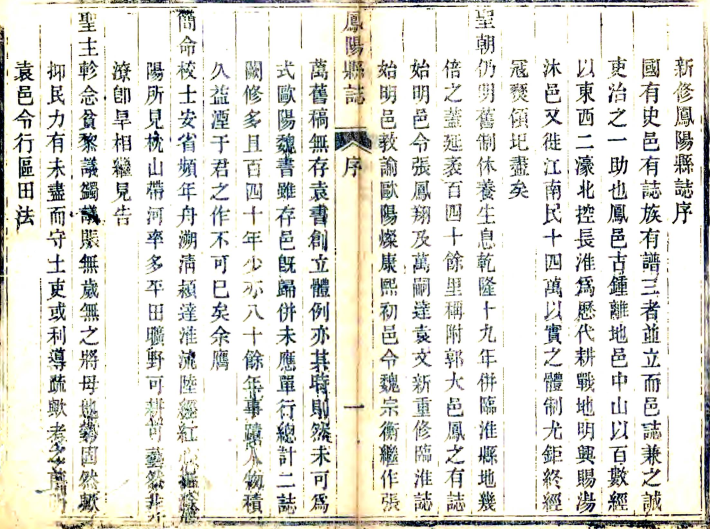 新修鳳陽縣誌序
國有史邑有誌族有譜三者並立而邑誌兼之誠
吏治之一助也鳳邑古鍾離地邑中山以百數經
以東西二濠北控長淮為歷代耕戰地明興賜湯
沐邑又徙江南民十四萬以實之體制尤鉅終經
冦燹傾圮盡矣
聖朝仍明舊制休養生息乾隆十九年併臨淮縣地幾
倍之蓋延袤百四十餘里稱附郭大邑鳳之有誌
始明邑令張鳳翔及萬嗣達袁文新重修臨淮誌
始明邑教諭歐陽燦康熙初邑令魏宗衡繼作張
鳳陽縣誌
序
一
萬舊稿無存袁書創立體例亦其時則然未可為
式歐陽魏書雖存邑既歸併未應單行總計二誌
闕修多且百四十年少亦八十餘年事蹟人物積
久益湮于君之作不可已矣余膺
簡命校士安省頻年舟溯清潁達淮流陸經紅
陽所見枕山帶河率多平田曠野可耕可藝
潦卽旱相繼見告
聖主軫念貧黎議蠲議賑無歲無之將毋地勢固然歟
抑民力有未盡而守土吏或利導疏歟者
袁邑令行區田法